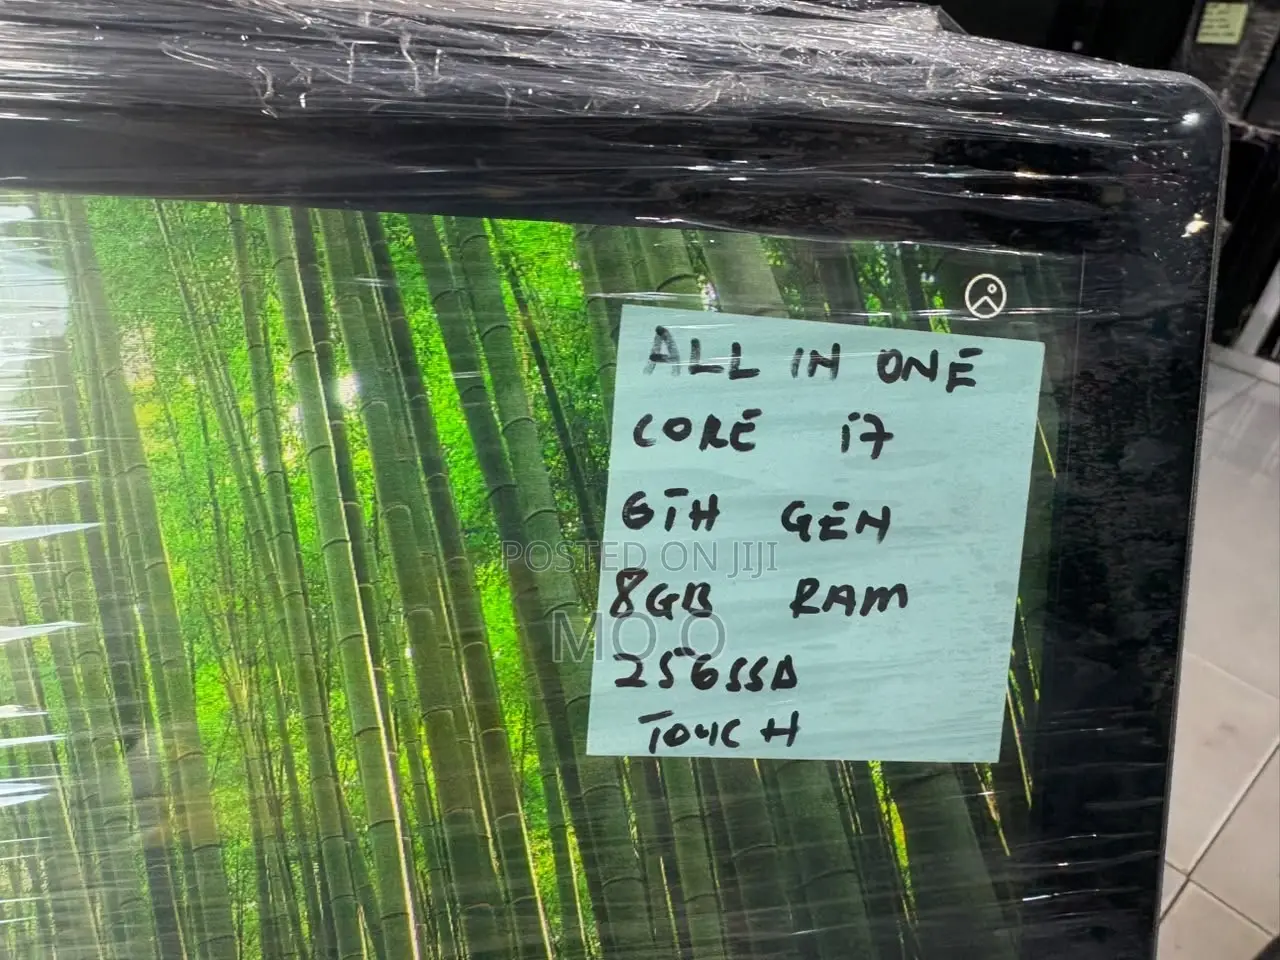 ALL IN ONE
CORE i7
6TH GEN
POSTED ON JIJI
8GB RAM
256SSD
TOUCH